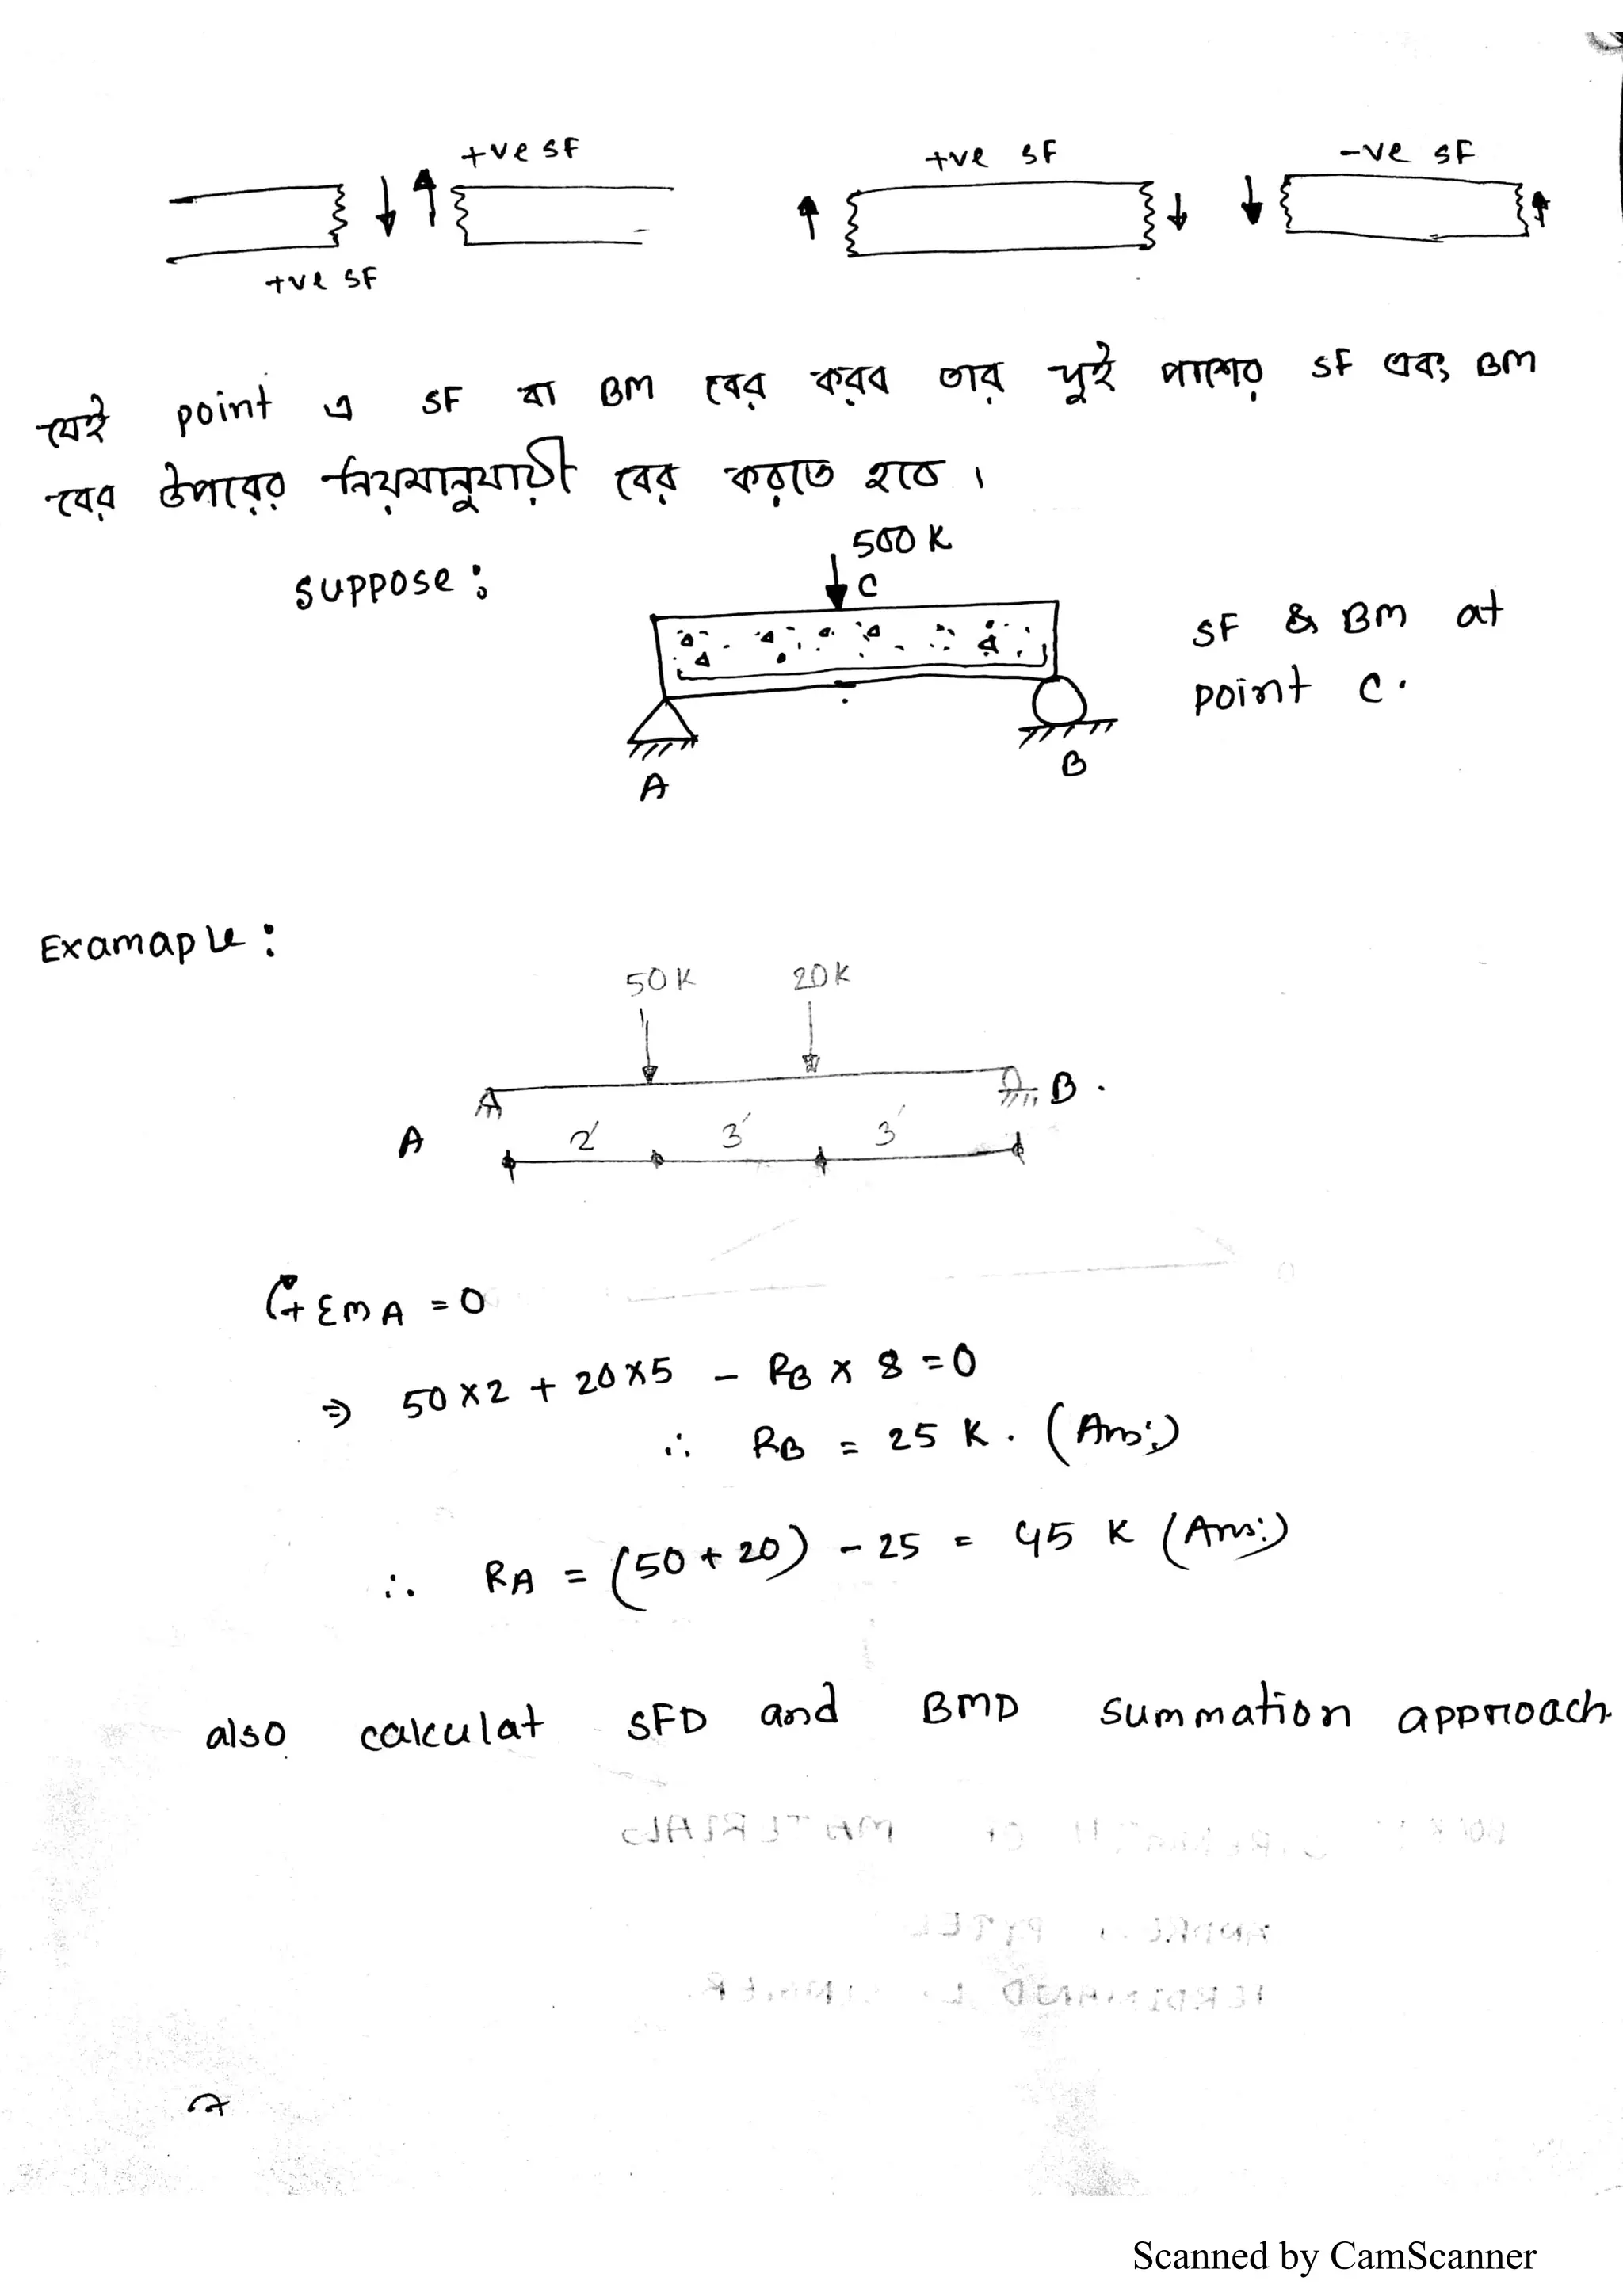 +ve SF
+ve SF
+ve SF
-ve SF
যেই point এ SF বা BM বের করব তার দুই পাশের SF এবং BM
বের উপরের নিয়মানুযায়ী বের করতে হবে ।
suppose :
500 K
C
A
B
SF & BM at
point C.
Examaple :
50K 20K
A
B .
2' 3' 3'
+ ΣMA = 0
⇒ 50 x 2 + 20 x 5 - RB x 8 = 0
∴ RB = 25 K. (Ans:)
∴ RA = (50 + 20) - 25 = 45 K (Ans:)
also calculat SFD and BMD summation approach.
Scanned by CamScanner